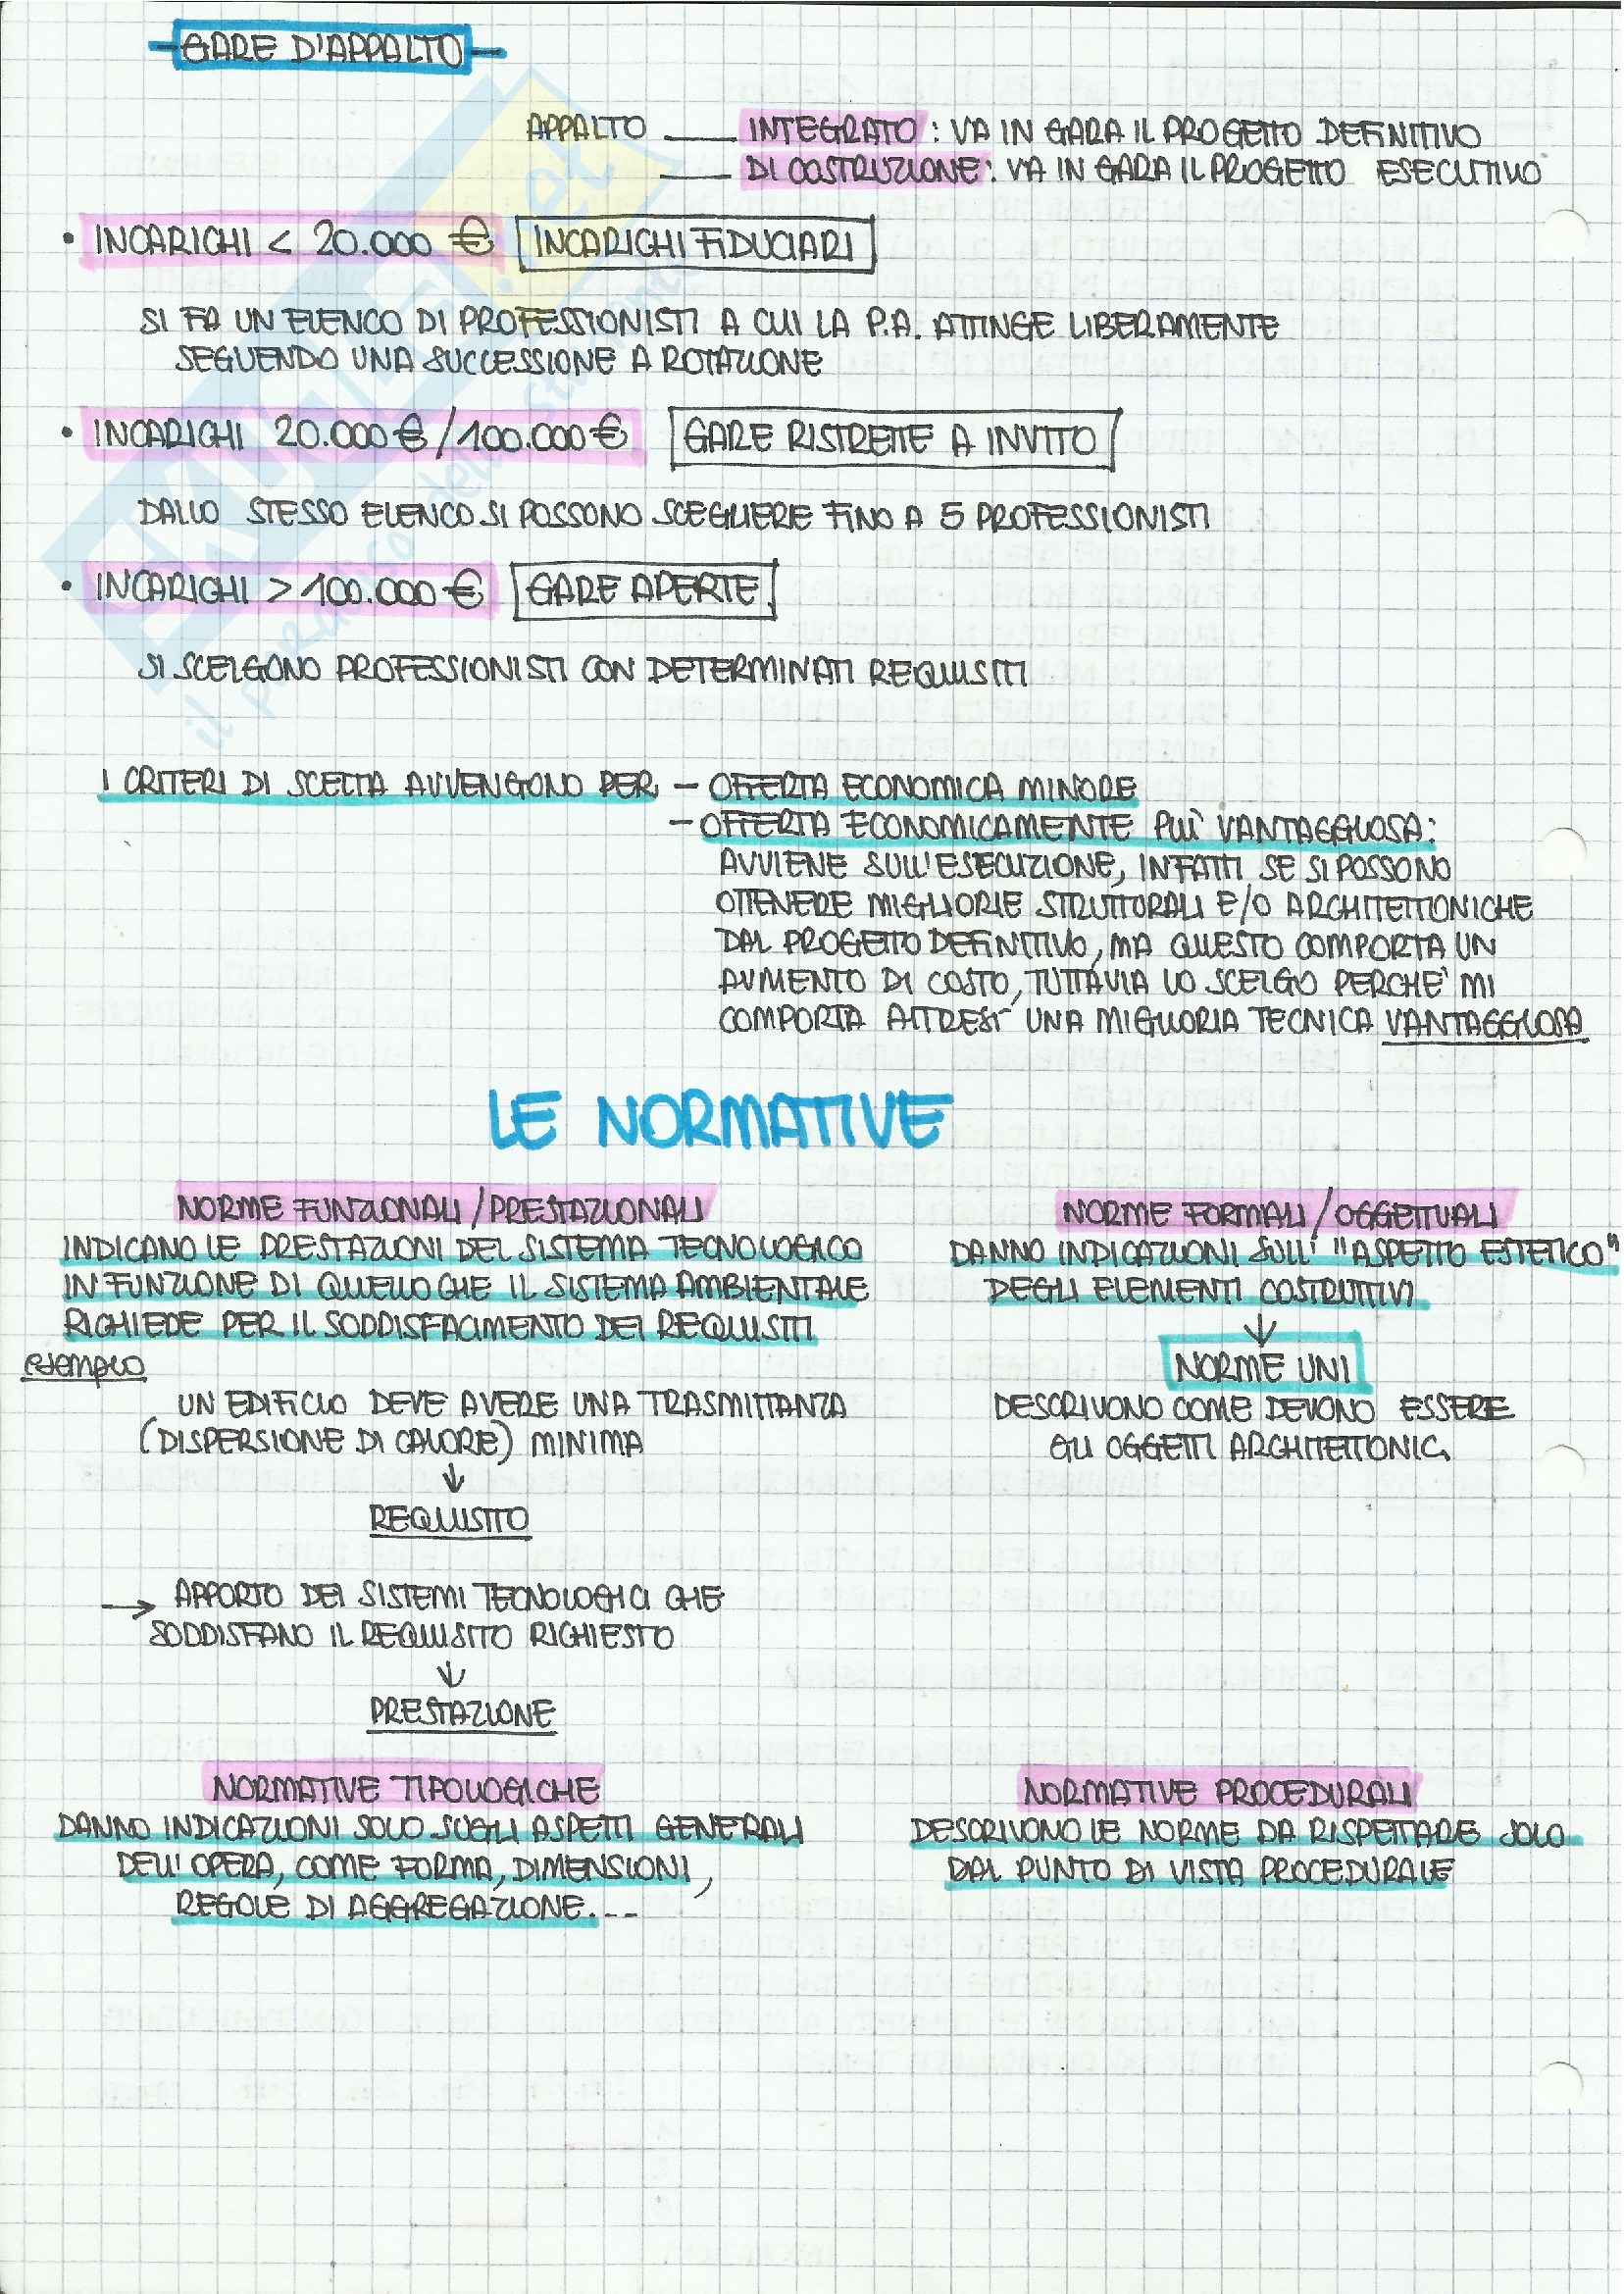 GARE D'APPALTO
APPALTO INTEGRATO: VA IN GARA IL PROGETTO DEFINITIVO
DI COSTRUZIONE: VA IN GARA IL PROGETTO ESECUTIVO
• INCARICHI < 20.000 € INCARICHI FIDUCIARI
SI FA UN ELENCO DI PROFESSIONISTI A CUI LA P.A. ATTINGE LIBERAMENTE
SEGUENDO UNA SUCCESSIONE A ROTAZIONE
• INCARICHI 20.000 € / 100.000 € GARE RISTRETTE A INVITO
DALLO STESSO ELENCO SI POSSONO SCEGLIERE FINO A 5 PROFESSIONISTI
• INCARICHI > 100.000 € GARE APERTE
SI SCELGONO PROFESSIONISTI CON DETERMINATI REQUISITI
I CRITERI DI SCELTA AVVENGONO PER - OFFERTA ECONOMICA MINORE
- OFFERTA ECONOMICAMENTE PIUÌ VANTAGGIOSA:
AVVIENE SULL'ESECUZIONE, INFATTI SE SI POSSONO
OTTENERE MIGLIORIE STRUTTURALI E/O ARCHITETTONICHE
DAL PROGETTO DEFINITIVO, MA QUESTO COMPORTA UN
AUMENTO DI COSTO, TUTTAVIA LO SCELGO PERCHE' MI
COMPORTA ALTRESI' UNA MIGLIORIA TECNICA VANTAGGIOSA
LE NORMATIVE
NORME FUNZIONALI / PRESTAZIONALI
INDICANO LE PRESTAZIONI DEL SISTEMA TECNOLOGICO
IN FUNZIONE DI QUELLO CHE IL SISTEMA AMBIENTALE
RICHIEDE PER IL SODDISFACIMENTO DEI REQUISITI
esempio
UN EDIFICIO DEVE AVERE UNA TRASMITTANZA
(DISPERSIONE DI CALORE) MINIMA
↓
REQUISITO
→ APPORTO DEI SISTEMI TECNOLOGICI CHE
SODDISFANO IL REQUISITO RICHIESTO
↓
PRESTAZIONE
NORME FORMALI / OGGETTUALI
DANNO INDICAZIONI SULL' "ASPETTO ESTETICO"
DEGLI ELEMENTI COSTRUTTIVI
↓
NORME UNI
DESCRIVONO COME DEVONO ESSERE
GLI OGGETTI ARCHITETTONICI
NORMATIVE TIPOLOGICHE
DANNO INDICAZIONI SOLO SUGLI ASPETTI GENERALI
DELL'OPERA, COME FORMA, DIMENSIONI,
REGOLE DI AGGREGAZIONE...
NORMATIVE PROCEDURALI
DESCRIVONO LE NORME DA RISPETTARE SOLO
DAL PUNTO DI VISTA PROCEDURALE